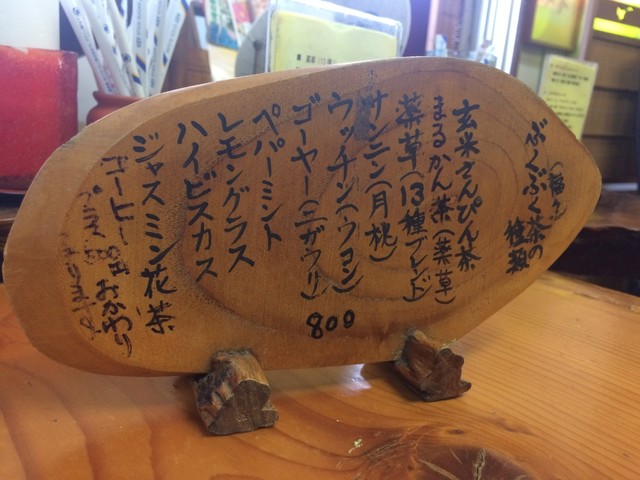 ぶくぶく茶の
(福々)
種類
玄米さんぴん茶
まるかん茶(薬草)
薬草(13種ブレンド)
サンニン(月桃)
ウッチン(ウコン)
ゴーヤー(ニガウリ)
800
ペパーミント
レモングラス
ハイビスカス
ジャスミン花茶
コーヒー
おかわり